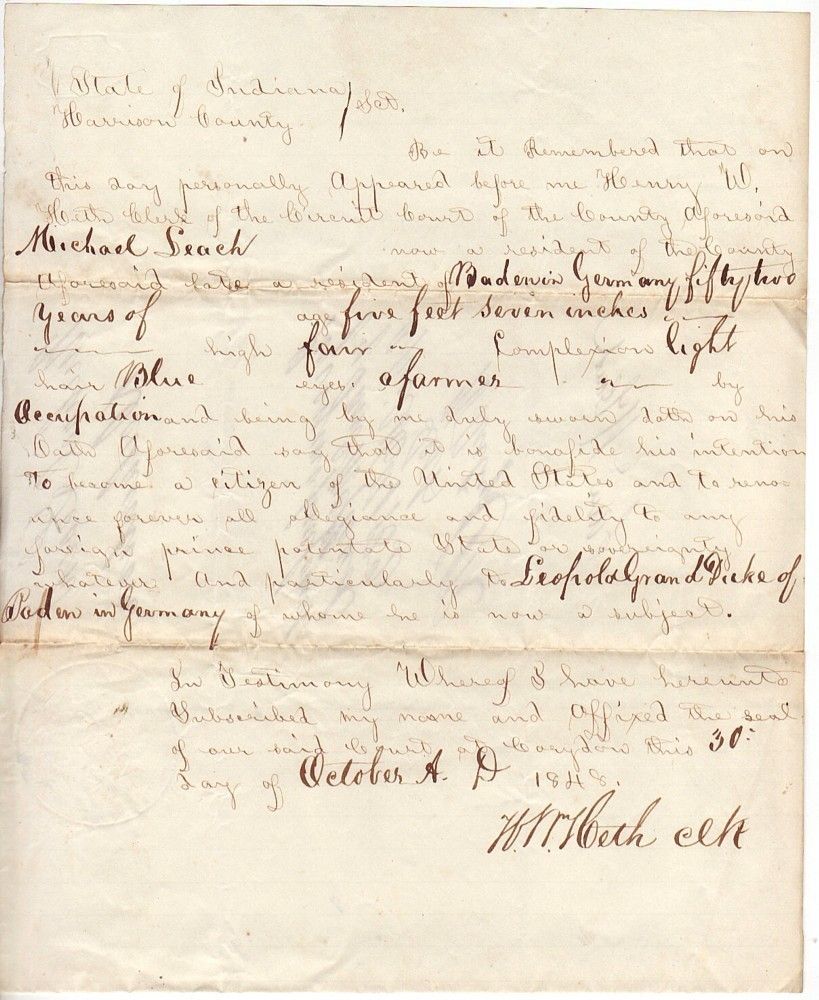 State of Indiana } Sct.
Harrison County
Be it Remembered that on
this day personally Appeared before me Henry W.
Heth Clerk of the Circuit Court of the County Aforesaid
Michael Leach now a resident of the County
Aforesaid late a resident of Baden in Germany fifty two
Years of age five feet seven inches
high fair Complexion light
hair Blue eyes. a farmer by
Occupation and being by me duly sworn doth on his
Oath Aforesaid say that it is bonafide his intention
To become a citizen of the United States and to reno=
unce forever all allegiance and fidelity to any
foreign prince potentate State or sovereignty
whatever And particularly to Leopold Grand Duke of
Baden in Germany of whome he is now a subject.
In Testimony Whereof I have hereunto
Subscribed my name and Affixed the seal
of our said Court at Corydon this 30th
day of October A. D 1848.
H. W. Heth clk